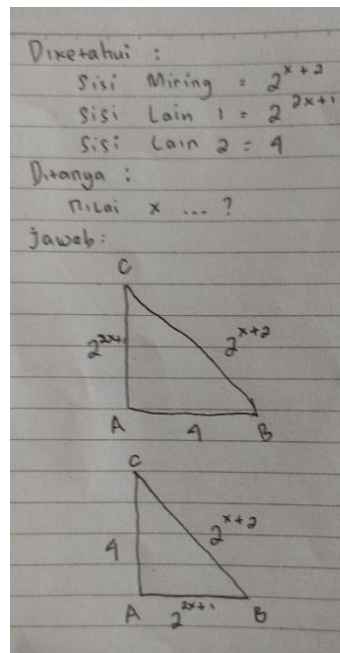 Diketahui :
Sisi Miring = 2^{x+2}
Sisi Lain 1 = 2^{2x+1}
Sisi Lain 2 = 4
Ditanya :
Nilai x ... ?
jawab :
C
2^{2x+1} 2^{x+2}
A 4 B
C
4 2^{x+2}
A 2^{2x+1} B